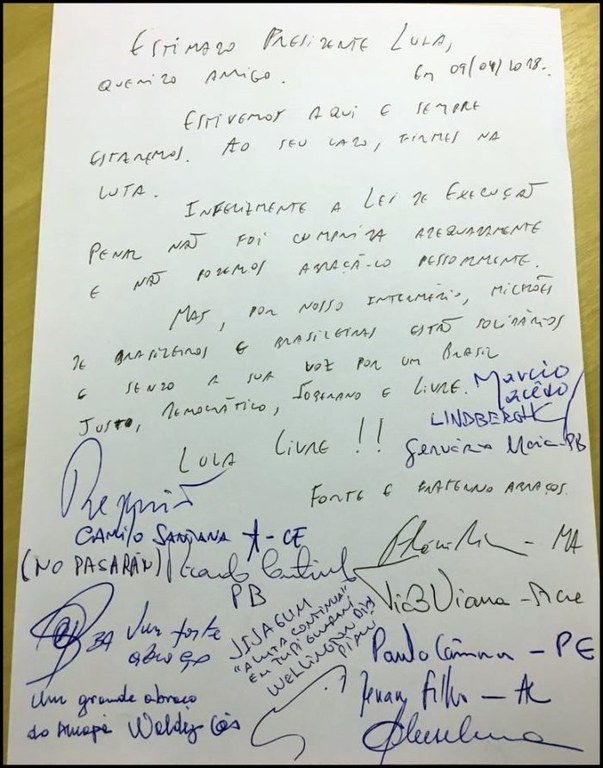 ESTIMADO PRESIDENTE LULA,
QUERIDO AMIGO. EM 09/04/2018.
ESTIVEMOS AQUI E SEMPRE
ESTAREMOS. AO SEU LADO, FIRMES NA
LUTA.
INFELIZMENTE A LEI DE EXECUÇÃO
PENAL NÃO FOI CUMPRIDA ADEQUADAMENTE
E NÃO PODEMOS ABRAÇÁ-LO PESSOALMENTE.
MAS, POR NOSSO INTERMÉDIO, MILHÕES
DE BRASILEIROS E BRASILEIRAS ESTÃO SOLIDÁRIOS
E SENDO A SUA VOZ POR UM BRASIL
JUSTO, DEMOCRÁTICO, SOBERANO E LIVRE.
Marcio
Macêdo
LINDBERGH
Gervásio Maia-PB
LULA LIVRE!!
FORTE E FRATERNO ABRAÇOS.
Requião
CAMILO SANTANA - CE
(NO PASARÁN) Ricardo Coutinho
PB
Flávio Dino - MA
Tião Viana - Acre
BA Um forte
abraço
JIJAGUM
"A LUTA CONTINUA"
EM TUPI GUARANI
WELLINGTON DIAS
PIAUÍ
Paulo Câmara - PE
Renan Filho - AL
Um grande abraço
do Amapá Waldez Góes